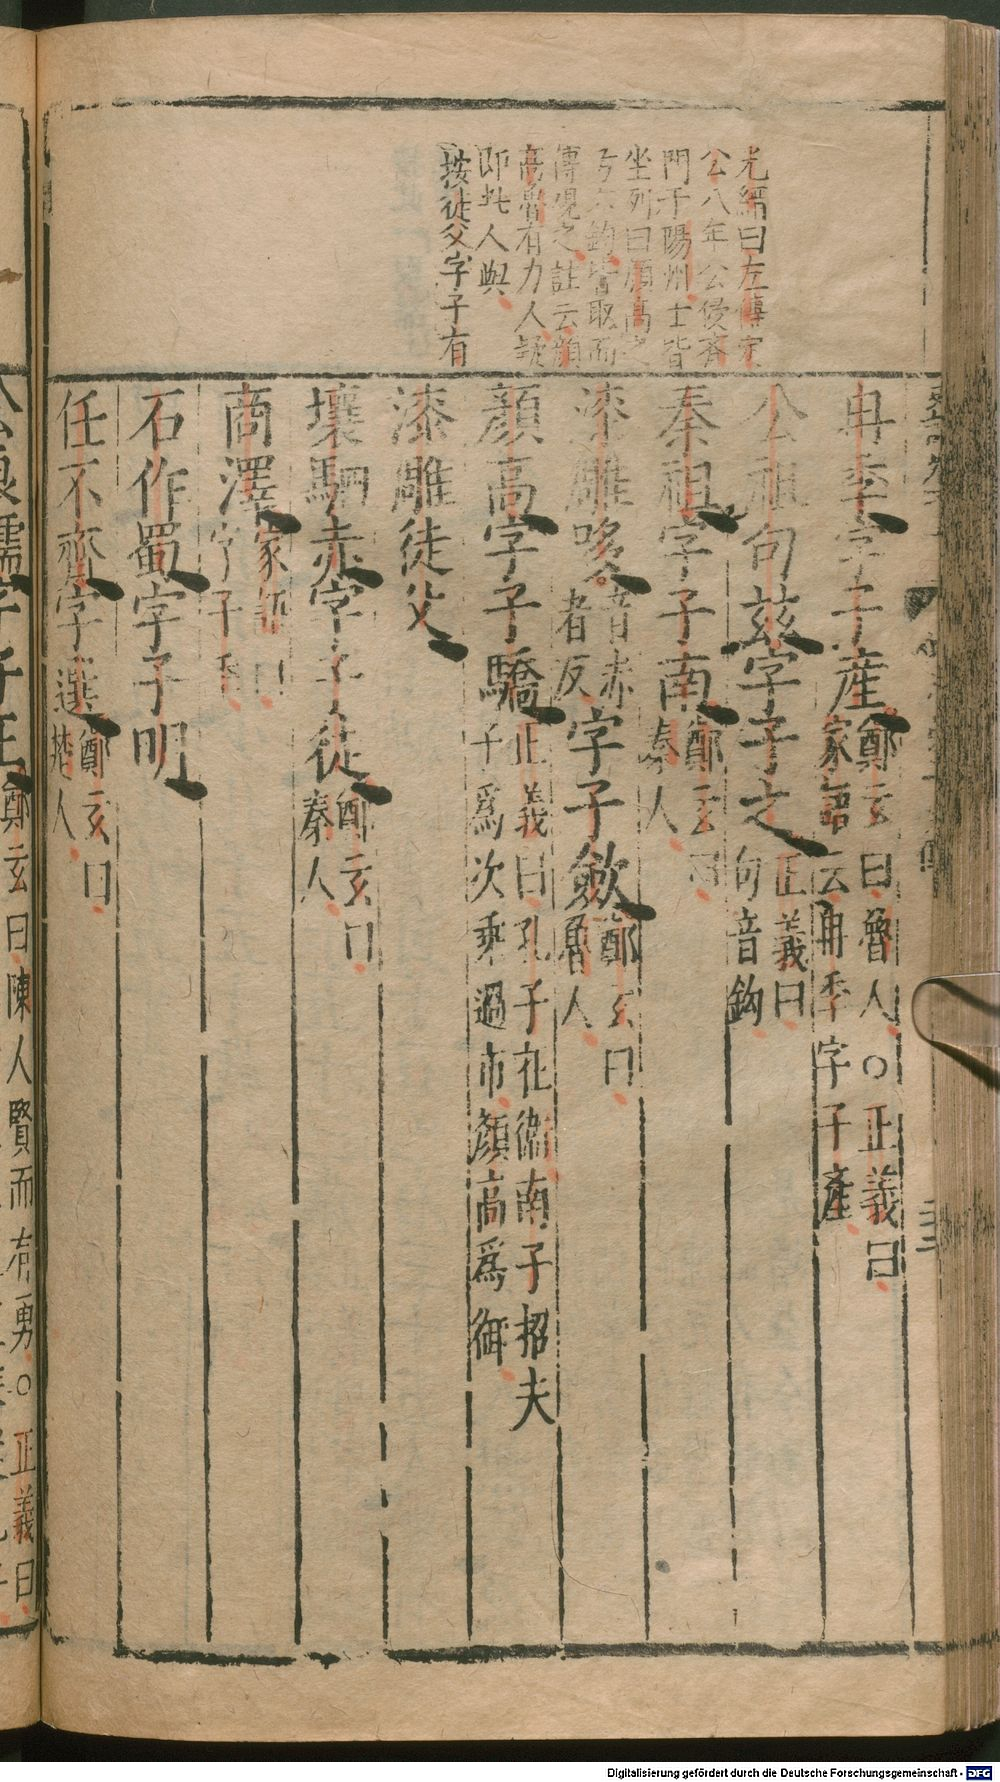 光縉曰左傳定
公八年公侵齊
門于陽州士皆
坐列曰顏高之
弓六鈞皆取而
傳觀之註云顏
高魯有力人疑
即此人與
按徒父字子有
冉季字子產鄭玄曰魯人○正義曰家語云冉季字子產
公祖句茲字子之正義曰句音鈎
秦祖字子南鄭玄曰秦人
漆雕哆音赤者反字子斂鄭玄曰魯人
顏高字子驕正義曰孔子在衛南子招夫子爲次乘過市顏高爲御
漆雕徒父
壤駟赤字子徒鄭玄曰秦人
商澤家語曰字子季
石作蜀字子明
任不齊字選鄭玄曰楚人
公良孺字子正鄭玄曰陳人賢而有勇○正義曰
Digitalisierung gefördert durch die Deutsche Forschungsgemeinschaft - DFG